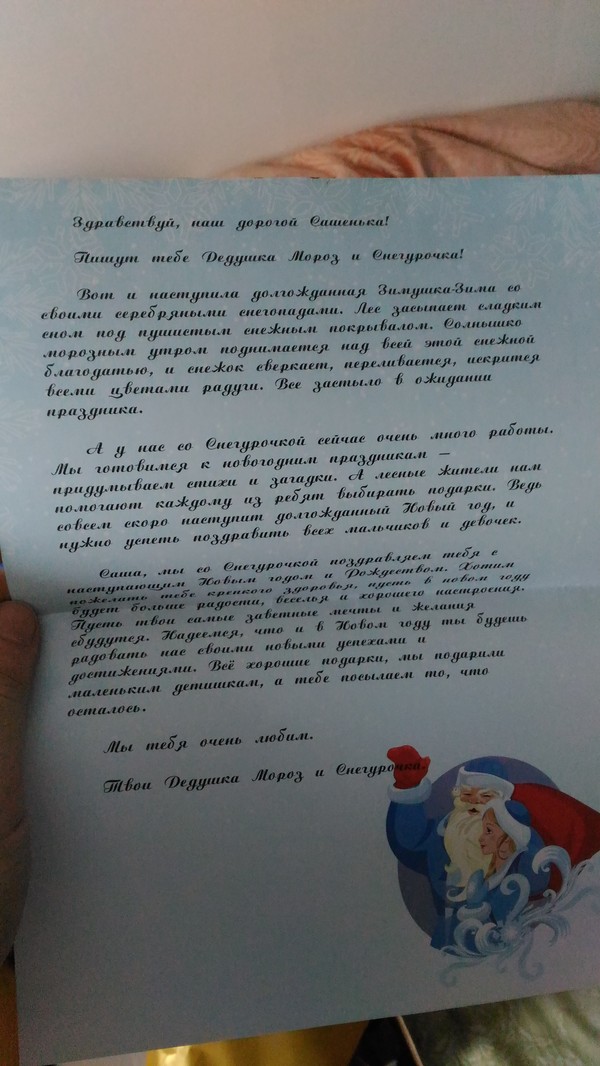 Здравствуй, наш дорогой Сашенька!
Пишут тебе Дедушка Мороз и Снегурочка!
Вот и наступила долгожданная Зимушка-Зима со
своими серебряными снегопадами. Лес засыпает сладким
сном под пушистым снежным покрывалом. Солнышко
морозным утром поднимается над всей этой снежной
благодатью, и снежок сверкает, переливается, искрится
всеми цветами радуги. Все застыло в ожидании
праздника.
А у нас со Снегурочкой сейчас очень много работы.
Мы готовимся к новогодним праздникам –
придумываем стихи и загадки. А лесные жители нам
помогают каждому из ребят выбирать подарки. Ведь
совсем скоро наступит долгожданный Новый год, и
нужно успеть поздравить всех мальчиков и девочек.
Саша, мы со Снегурочкой поздравляем тебя с
наступающим Новым годом и Рождеством. Хотим
пожелать тебе крепкого здоровья, пусть в новом году
будет больше радости, веселья и хорошего настроения.
Пусть твои самые заветные мечты и желания
сбудутся. Надеемся, что и в Новом году ты будешь
радовать нас своими новыми успехами и
достижениями. Всё хорошие подарки, мы подарили
маленьким детишкам, а тебе посылаем то, что
осталось.
Мы тебя очень любим.
Твои Дедушка Мороз и Снегурочка.